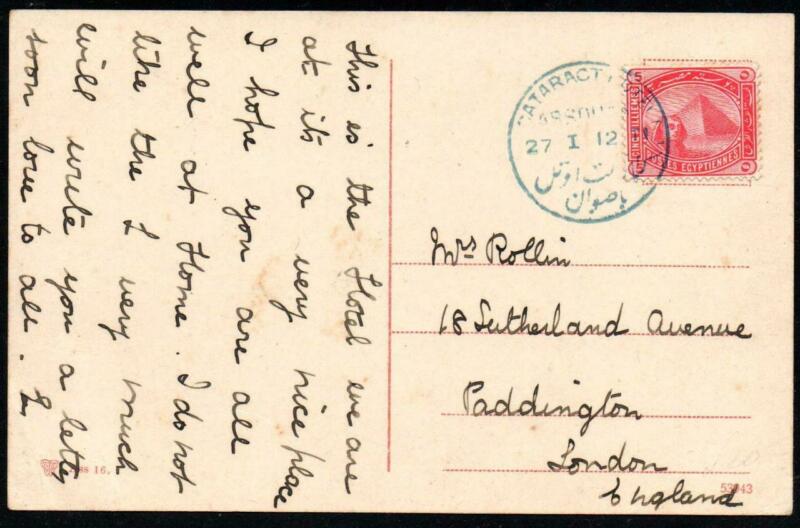 This is the Hotel we are
at its a very nice place
I hope you are all
well at Home. I do not
like the I very much
will write you a letter
soon love to all.
CATARACT
ASSOUAN
27 I 12
باصوان
5
CINQ MILLIEMES
POSTES EGYPTIENNES
Mrs Rollin
18 Sutherland Avenue
Paddington
London
England
16.
53943